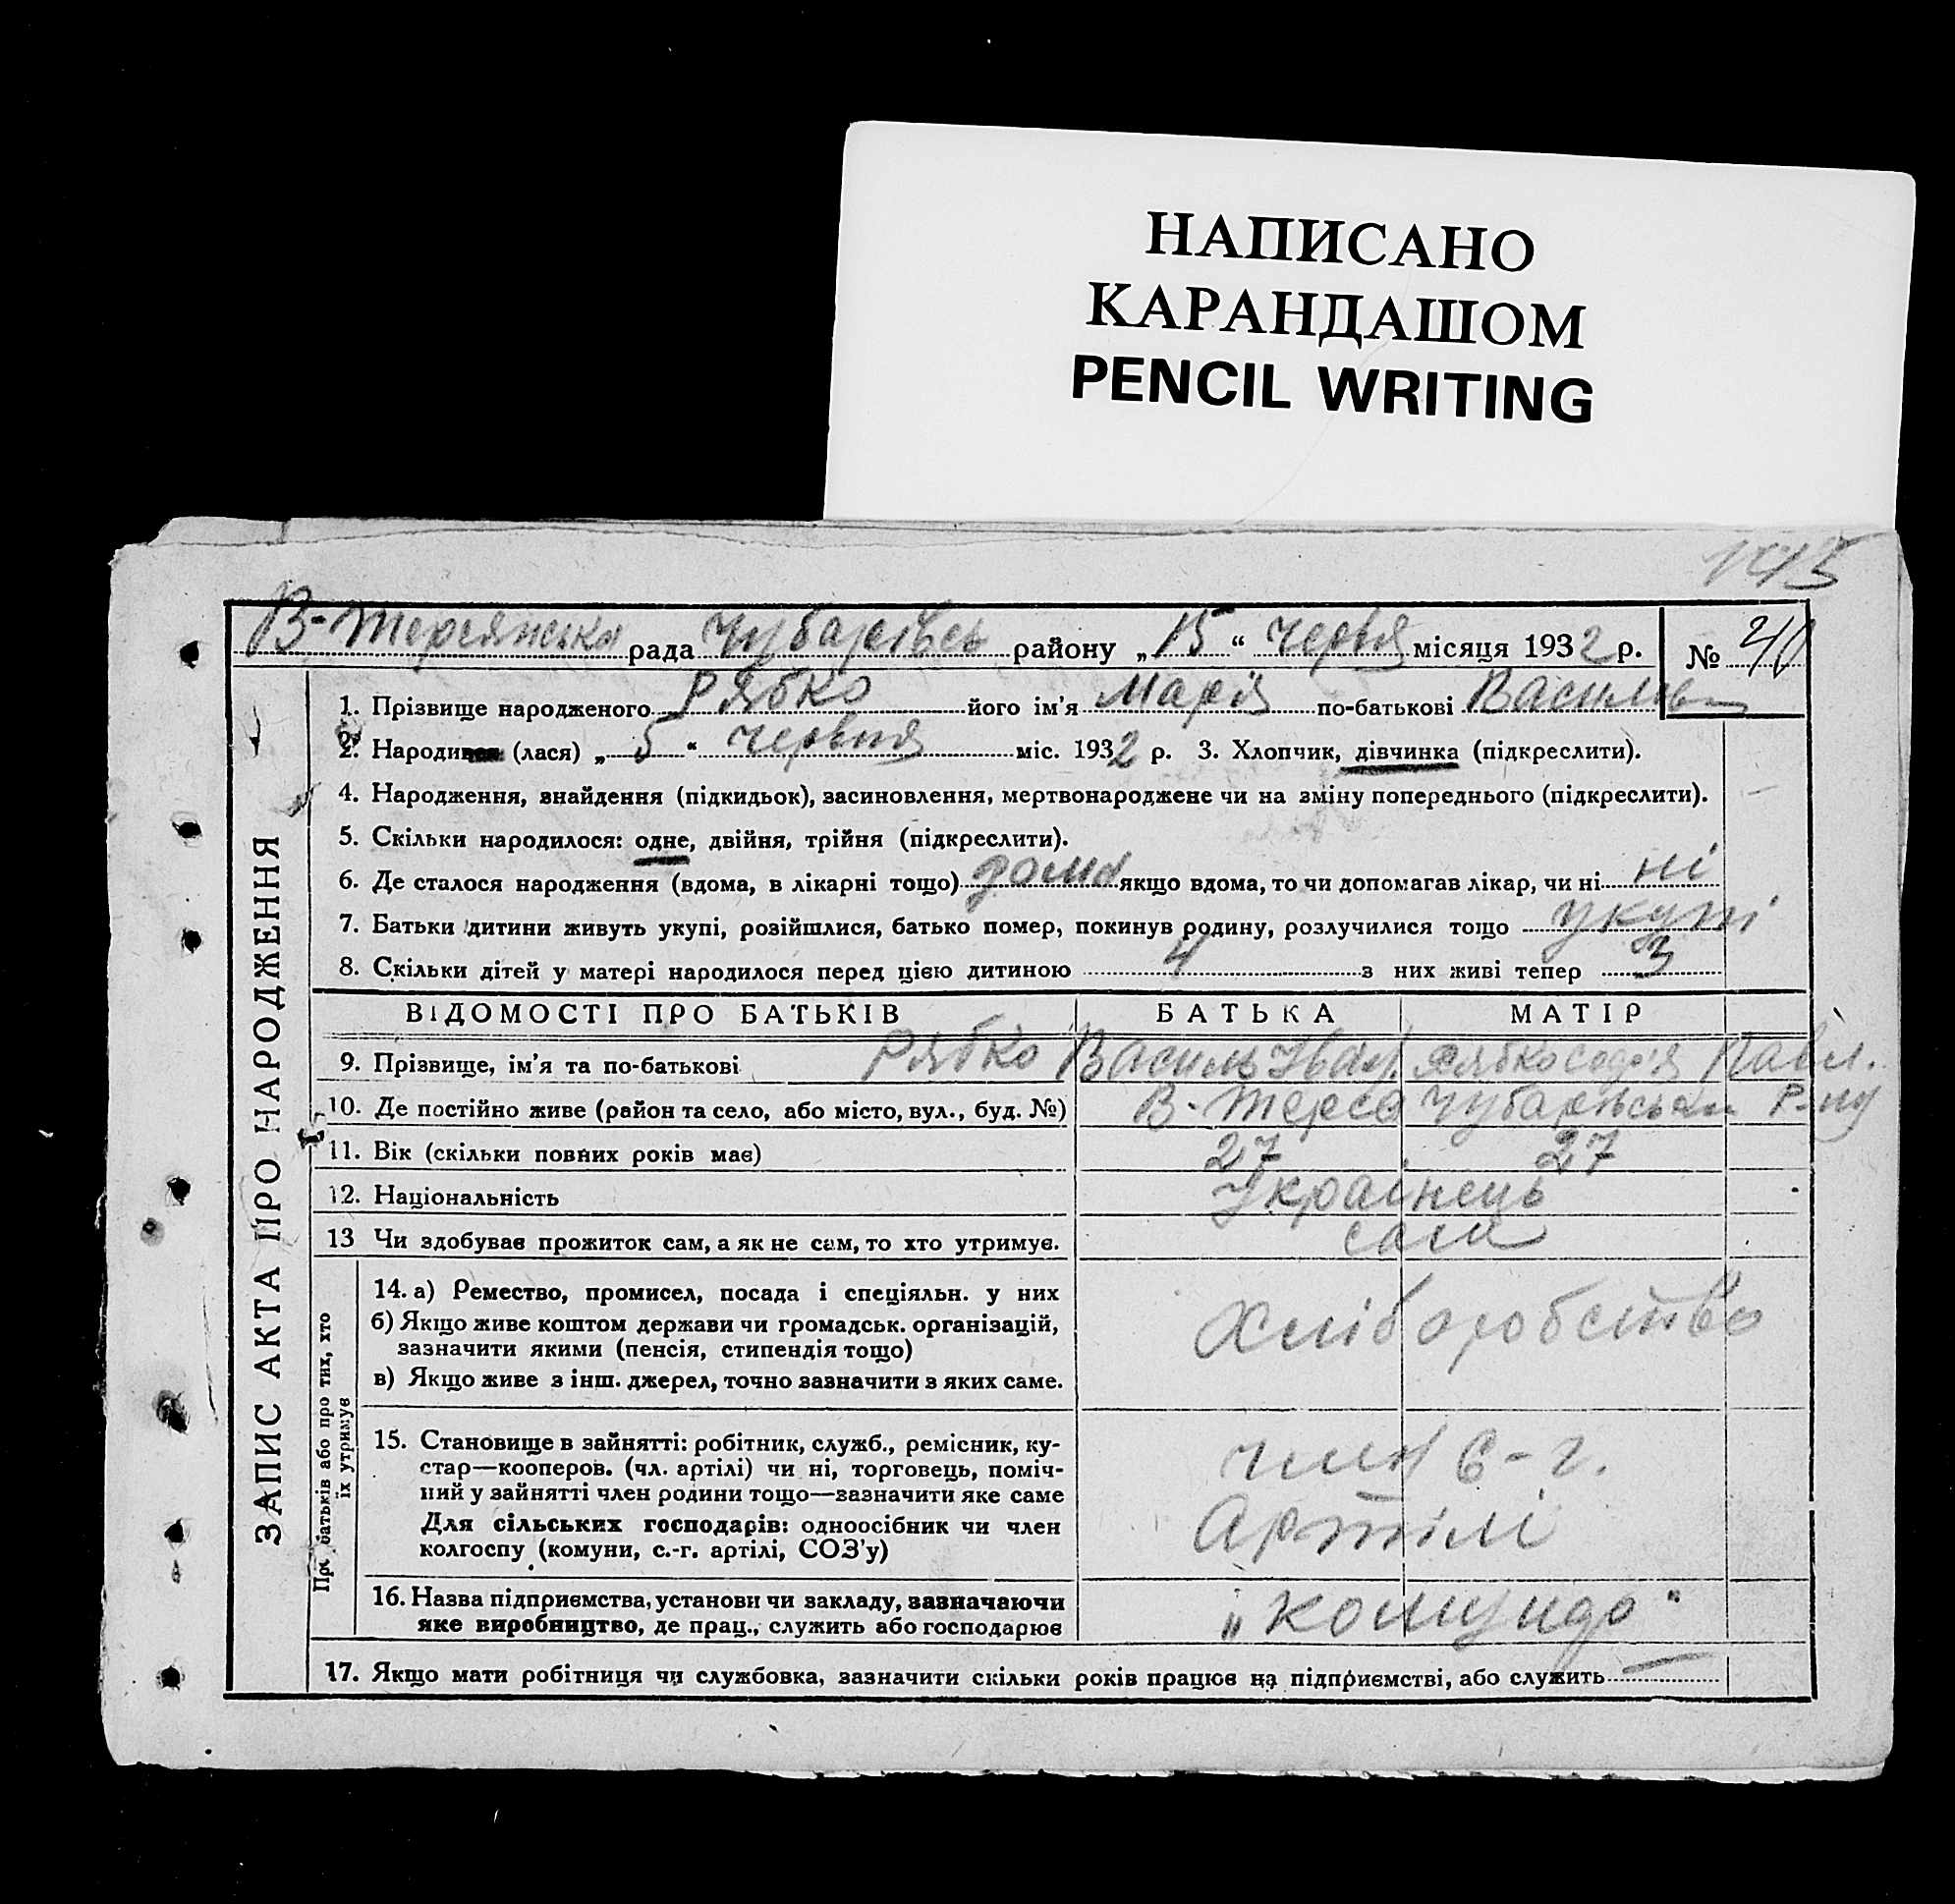 НАПИСАНО
КАРАНДАШОМ
PENCIL WRITING
145
В-Терсянська рада Чубарівсь району „15“ червня місяця 1932 р. № 40
ЗАПИС АКТА ПРО НАРОДЖЕННЯ
1. Прізвище народженого Рябко його ім'я Марія по-батькові Василівна
2. Народився (лася) „5“ червня міс. 1932 р. 3. Хлопчик, дівчинка (підкреслити).
4. Народження, знайдення (підкидьок), засиновлення, мертвонароджене чи на зміну попереднього (підкреслити).
5. Скільки народилося: одне, двійня, трійня (підкреслити).
6. Де сталося народження (вдома, в лікарні тощо) дома якщо вдома, то чи допомагав лікар, чи ні ні
7. Батьки дитини живуть укупі, розійшлися, батько помер, покинув родину, розлучилися тощо укупі
8. Скільки дітей у матері народилося перед цією дитиною 4 з них живі тепер 3
ВІДОМОСТІ ПРО БАТЬКІВ БАТЬКА МАТІР
9. Прізвище, ім'я та по-батькові Рябко Василь Іван. Рябко Софія Павл.
10. Де постійно живе (район та село, або місто, вул., буд. №) В-Терса Чубарівськ Р-ну
11. Вік (скільки повних років має) 27 27
12. Національність Українець
13 Чи здобуває прожиток сам, а як не сам, то хто утримує. сам
Про батьків або про тих, хто
їх утримує
14. а) Ремество, промисел, посада і спеціяльн. у них
б) Якщо живе коштом держави чи громадськ. організацій,
зазначити якими (пенсія, стипендія тощо)
в) Якщо живе з інш. джерел, точно зазначити з яких саме.
Хліборобство
15. Становище в зайнятті: робітник, служб., ремісник, ку-
стар—кооперов. (чл. артілі) чи ні, торговець, поміч-
ний у зайнятті член родини тощо—зазначити яке саме
Для сільських господарів: одноосібник чи член
колгоспу (комуни, с.-г. артілі, СОЗ'у)
член с-г.
Артілі
16. Назва підприємства, установи чи закладу, зазначаючи
яке виробництво, де прац., служить або господарює
17. Якщо мати робітниця чи службовка, зазначити скільки років працює на підприємстві, або служить —